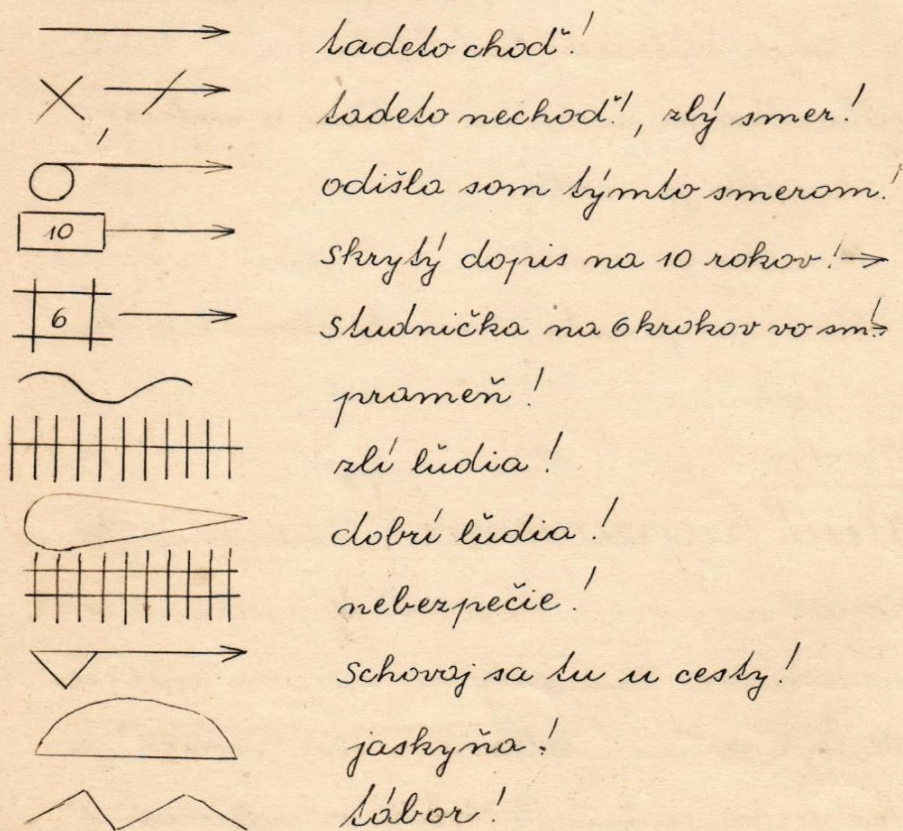 tadeto choď!
tadeto nechoď!, zlý smer!
odišla som týmto smerom!
10 skrytý dopis na 10 rokov! →
6 studnička na 6 krokov vo sm! →
prameň!
zlí ľudia!
dobrí ľudia!
nebezpečie!
schovaj sa tu u cesty!
jaskyňa!
tábor!